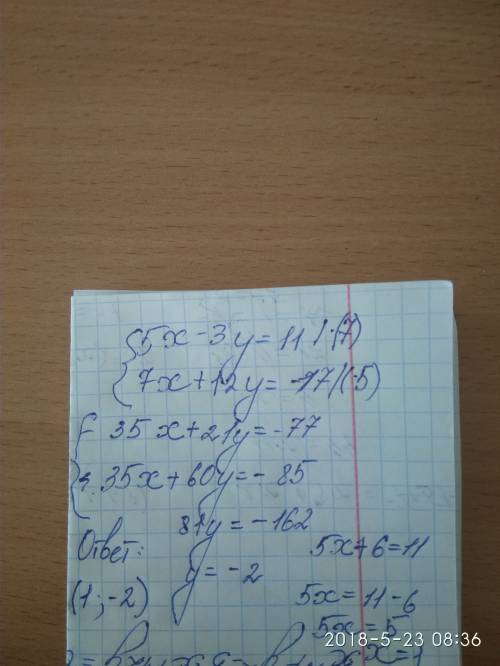 {5x-3y=11 |·(7)
{7x+12y=-17|(-5)
{-35x+21y=-77
35x+60y=-85
81y=-162
y=-2
Ответ:
(1;-2)
5x+6=11
5x=11-6
5x=5
x=1
2018-5-23 08:36